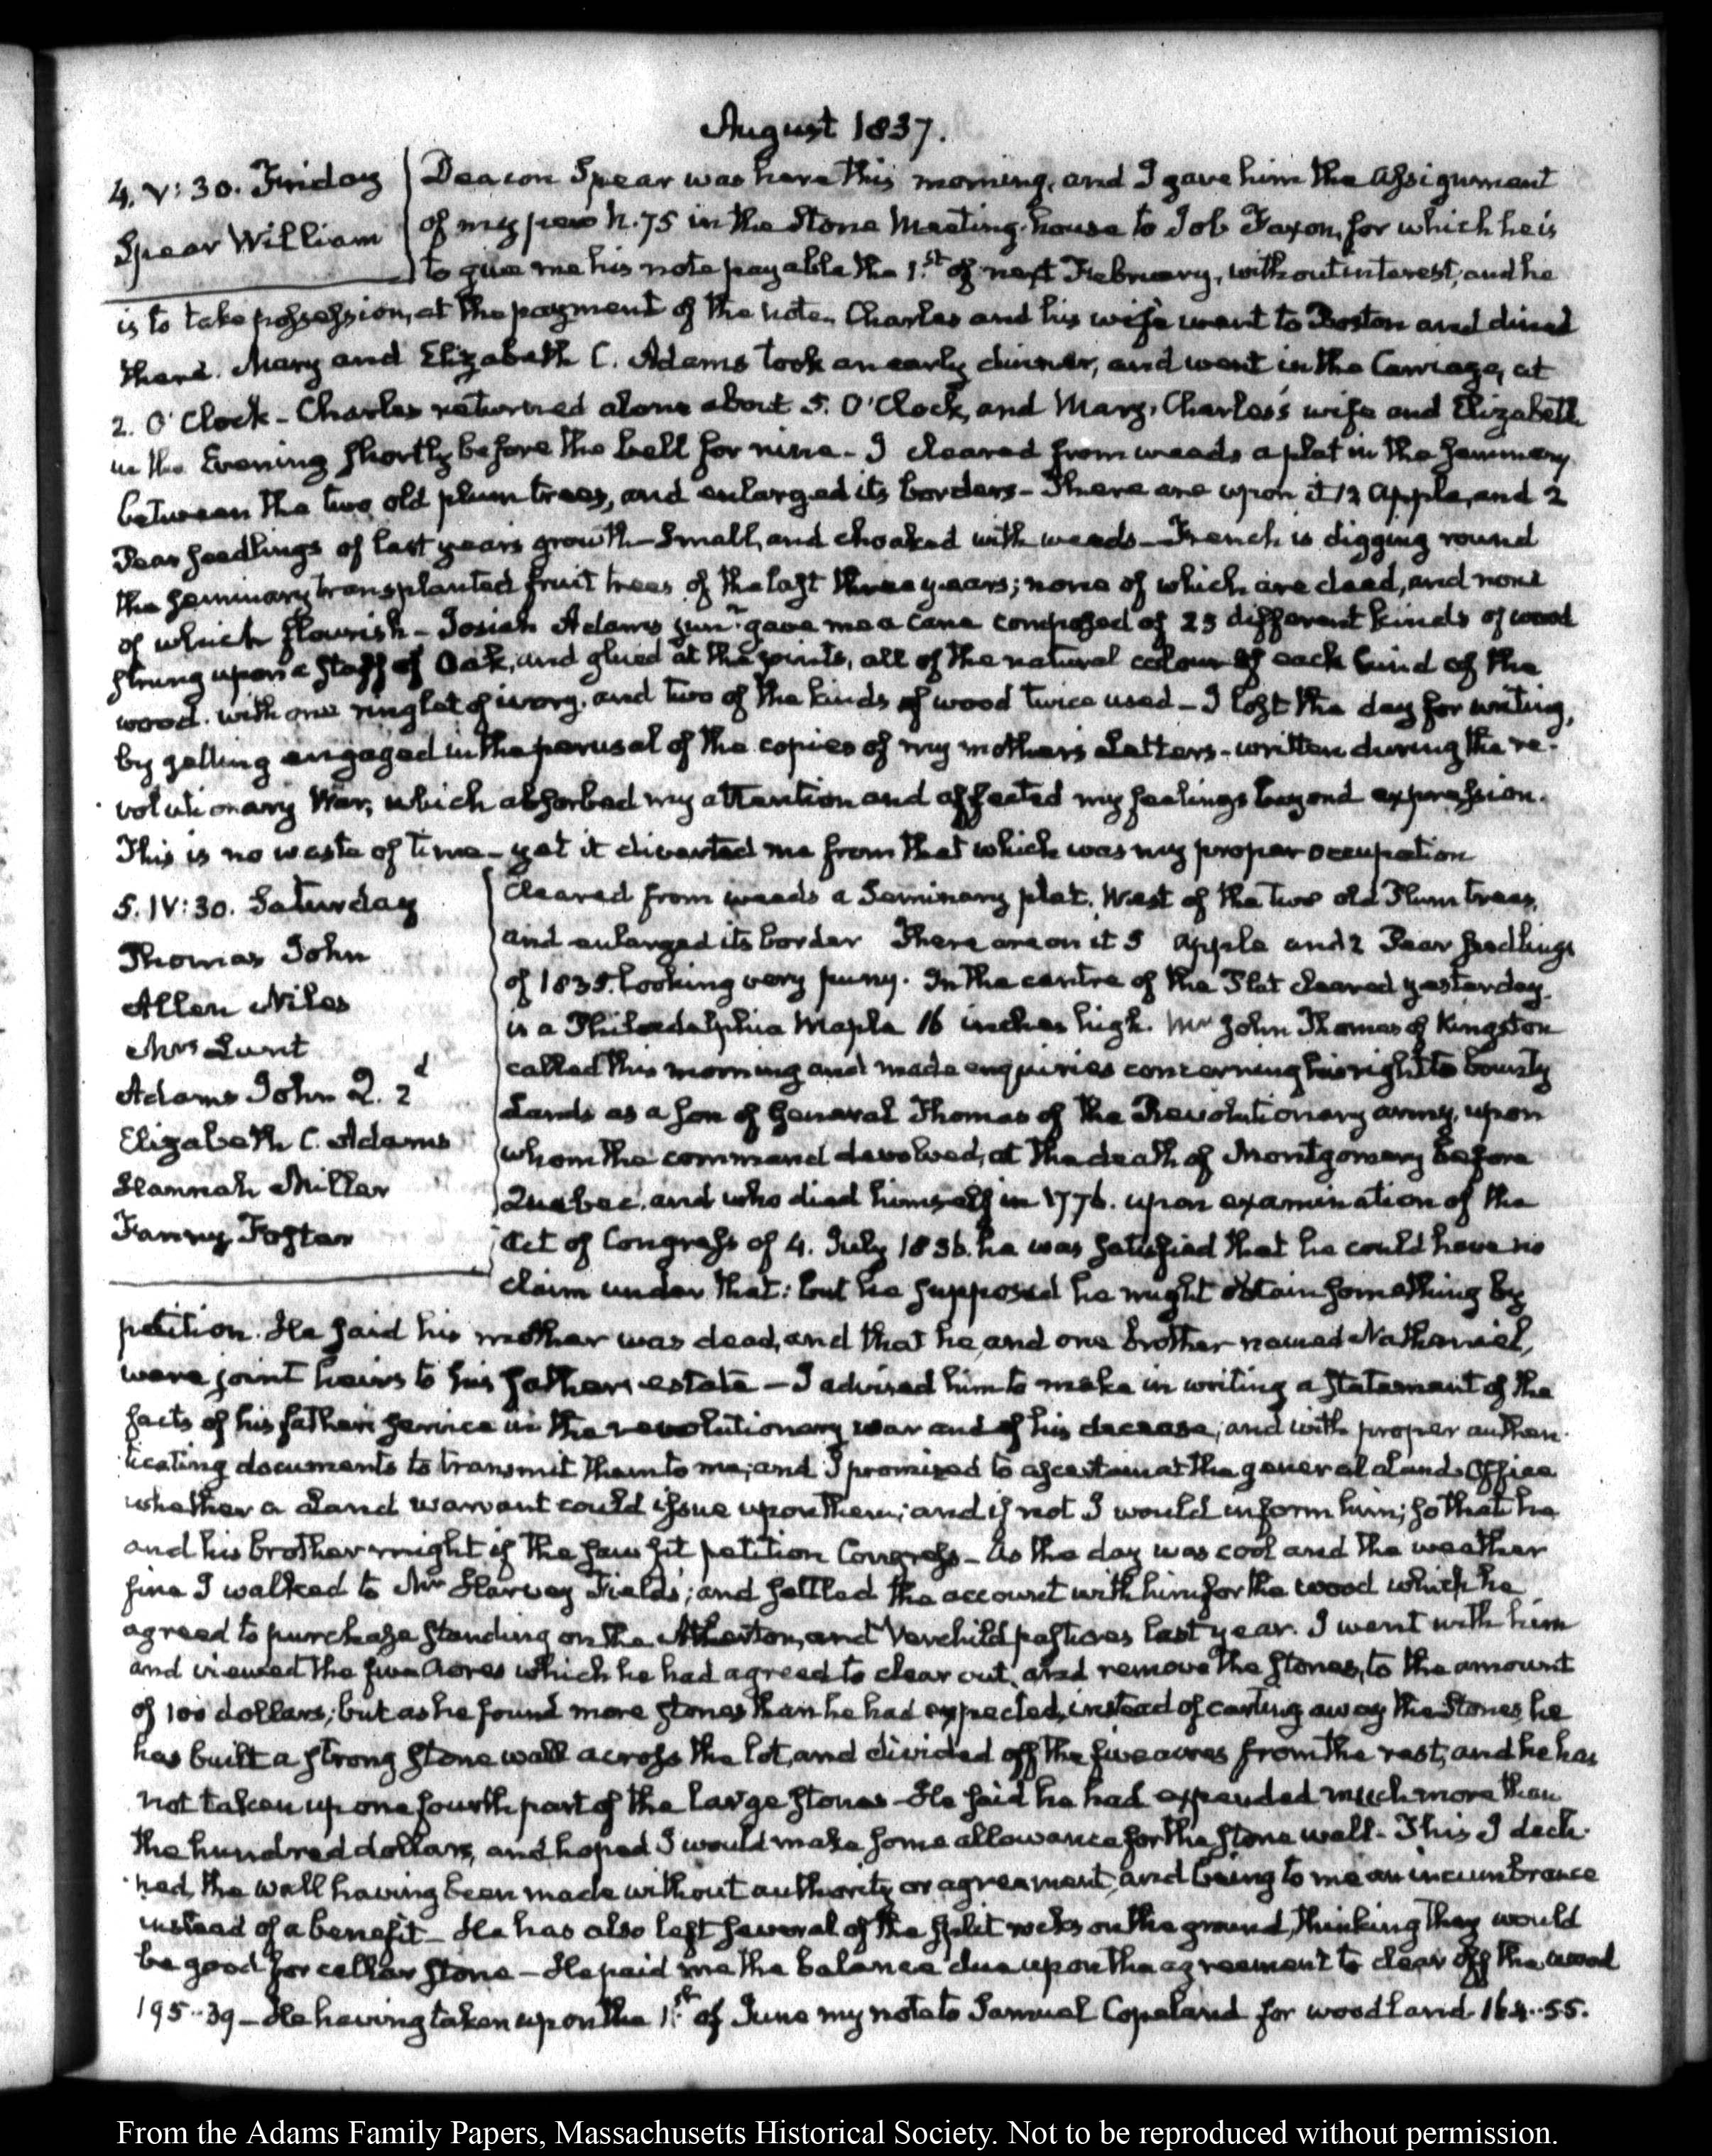 August 1837.
4. V:30. Friday
Spear William
Deacon Spear was here this morning, and I gave him the assignment
of my pew N. 75 in the Stone Meeting-house to Job Faxon, for which he is
to give me his note payable the 1.st of next February, without interest, and he
is to take possession, at the payment of the note. Charles and his wife went to Boston and dined
there. Mary and Elizabeth C. Adams took an early dinner, and went in the Carriage, at
2. O'Clock - Charles returned alone about 5. O'Clock, and Mary, Charles's wife and Elizabeth
in the Evening shortly before the bell for nine - I cleared from weeds a plat in the Seminary
between the two old plum trees, and enlarged its borders - There are upon it 12 Apple, and 2
Pear seedlings of last years growth - Small, and choaked with weeds - French is digging round
the Seminary transplanted fruit trees of the last three years; none of which are dead, and none
of which flourish - Josiah Adams junr. gave me a cane composed of 25 different kinds of wood
strung upon a staff of Oak, and glued at the joints, all of the natural colour of each kind of the
wood. with one ringlet of ivory, and two of the kinds of wood twice used - I lost the day for writing,
by getting engaged in the perusal of the copies of my mothers Letters - written during the re-
volutionary War, which absorbed my attention and affected my feelings beyond expression.
This is no waste of time - yet it diverted me from that which was my proper occupation
5. IV:30. Saturday
Thomas John
Allen Niles
Mrs Lunt
Adams John Q. 2d
Elizabeth C. Adams
Hannah Miller
Fanny Foster
Cleared from weeds a Seminary plat. West of the two old Plum trees,
and enlarged its border There are on it 5 apple and 2 Pear seedlings
of 1835. looking very puny. In the centre of the Plat cleared yesterday
is a Philadelphia Maple 16 inches high. Mr John Thomas of Kingston
called this morning and made enquiries concerning his right to bounty
Lands as a son of General Thomas of the Revolutionary army, upon
whom the command devolved, at the death of Montgomery before
Quebec, and who died himself in 1776. upon examination of the
Act of Congress of 4. July 1836. he was satisfied that he could have no
claim under that: but he supposed he might obtain something by
petition. He said his mother was dead, and that he, and one brother named Nathaniel,
were joint heirs to his fathers estate - I advised him to make in writing a statement of the
facts of his fathers service in the revolutionary war and of his decease; and with proper authen-
ticating documents to transmit them to me; and I promised to ascertain at the general Land Office
whether a Land warrant could issue upon them; and if not I would inform him; so that he
and his brother might if the saw fit petition Congress - As the day was cool and the weather
fine I walked to Mr Harvey Fields; and settled the account with him for the wood which he
agreed to purchase standing on the Atherton, and Verchild pastures last year. I went with him
and viewed the five Acres which he had agreed to clear out, and remove the stones, to the amount
of 100 dollars; but as he found more stones than he had expected, instead of carting away the Stones, he
has built a strong stone wall across the lot, and divided off the five acres from the rest, and he has
not taken up one fourth part of the large stones - He said he had expended much more than
the hundred dollars, and hoped I would make some allowance for the stone wall - This I decli-
ned, the wall having been made without authority or agreement, and being to me an incumbrance
instead of a benefit - He has also left several of the split rocks on the ground, thinking they would
be good for cellar stone - He paid me the balance due upon the agreement to clear off the wood
195..39 - He having taken up on the 1st. of June my note to Samuel Copeland for woodland 164..55.
From the Adams Family Papers, Massachusetts Historical Society. Not to be reproduced without permission.